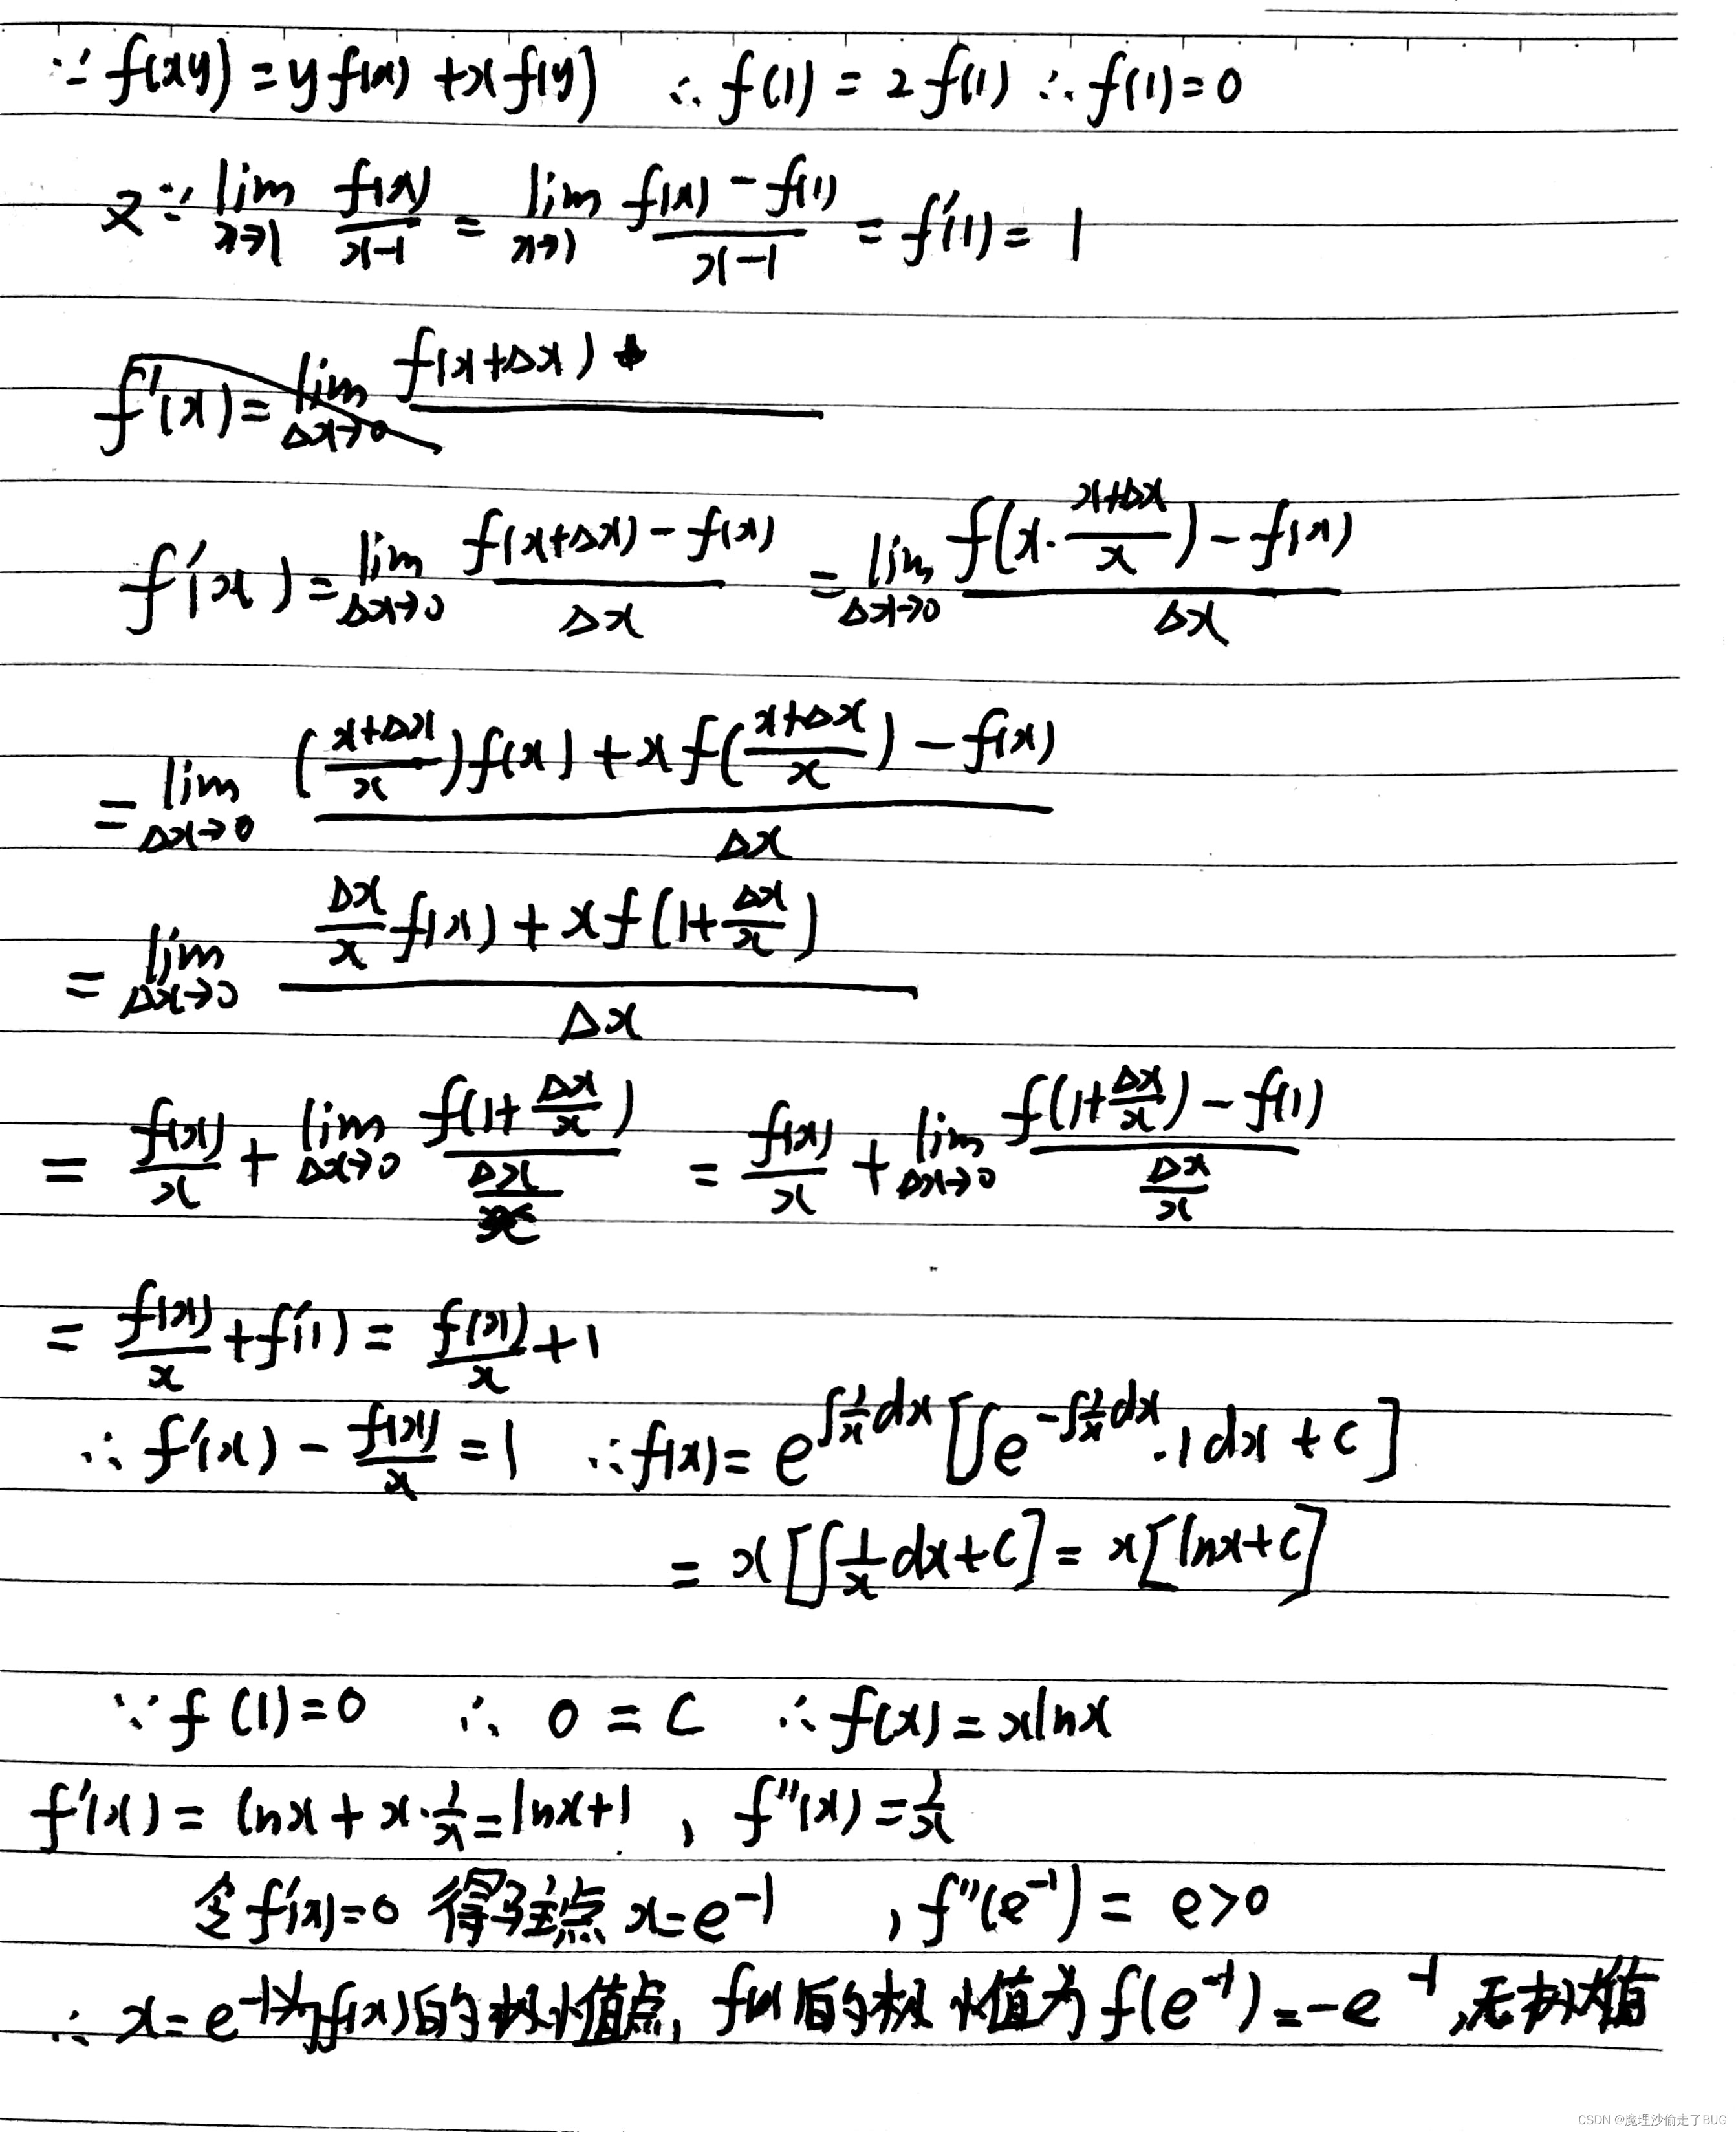 ∵ f(xy) = y f(x) + x f(y) ∴ f(1) = 2 f(1) ∴ f(1) = 0
又∵ lim_{x→1} f(x)/(x-1) = lim_{x→1} (f(x) - f(1))/(x-1) = f'(1) = 1
f'(x) = lim_{Δx→0} f(x+Δx)
f'(x) = lim_{Δx→0} (f(x+Δx) - f(x))/Δx = lim_{Δx→0} (f(x·(x+Δx)/x) - f(x))/Δx
= lim_{Δx→0} (((x+Δx)/x) f(x) + x f((x+Δx)/x) - f(x))/Δx
= lim_{Δx→0} ((Δx/x) f(x) + x f(1+Δx/x))/Δx
= f(x)/x + lim_{Δx→0} f(1+Δx/x)/(Δx/x) = f(x)/x + lim_{Δx→0} (f(1+Δx/x) - f(1))/(Δx/x)
= f(x)/x + f'(1) = f(x)/x + 1
∴ f'(x) - f(x)/x = 1 ∴ f(x) = e^{∫(1/x)dx} [∫e^{-∫(1/x)dx}·1dx + C]
= x[∫(1/x)dx + C] = x[lnx + C]
∵ f(1) = 0 ∴ 0 = C ∴ f(x) = xlnx
f'(x) = lnx + x·(1/x) = lnx+1 , f''(x) = 1/x
令 f'(x)=0 得驻点 x=e^{-1} , f''(e^{-1}) = e>0
∴ x=e^{-1}为f(x)的极小值点, f(x)的极小值为f(e^{-1}) = -e^{-1},无极大值
CSDN @魔理沙偷走了BUG